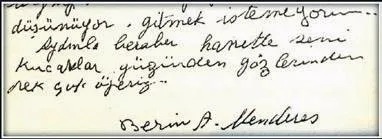 düşünüyor. gitmek istemeyorum..
Aydınla beraber hararetle seni
kucaklar, yüzünden gözlerinden
pek çok öperiz..
Berin A. Menderes